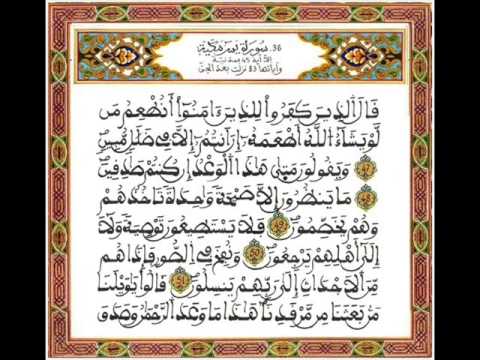 36 سورة يس مكية
إلا آية 45 فمدنية
وآياتها 83 نزلت بعد الجن
قَالَ الذِينَ كَفَرُوا لِلذِينَ ءَامَنُوا أَنُطْعِمُ مَن
لَّوْ يَشَآءُ اللَّهُ أَطْعَمَهُ إِنَ اَنتُمُ إِلَّا فِي ضَلَٰلٍ مُّبِينٍ
47 وَيَقُولُونَ مَتَىٰ هَٰذَا الْوَعْدُ إِن كُنتُمْ صَٰدِقِينَ
48 مَا يَنظُرُونَ إِلَّا صَيْحَةً وَٰحِدَةً تَاخُذُهُمْ
وَهُمْ يَخَصِّمُونَ 49 فَلَا يَسْتَطِيعُونَ تَوْصِيَةً وَلَا
إِلَىٰ أَهْلِهِمْ يَرْجِعُونَ 50 وَنُفِخَ فِي الصُّورِ فَإِذَا هُم
مِّنَ الْأَجْدَاثِ إِلَىٰ رَبِّهِمْ يَنسِلُونَ 51 قَالُوا يَٰوَيْلَنَا
مَن بَعَثَنَا مِن مَّرْقَدِنَا هَٰذَا مَا وَعَدَ الرَّحْمَٰنُ وَصَدَقَ